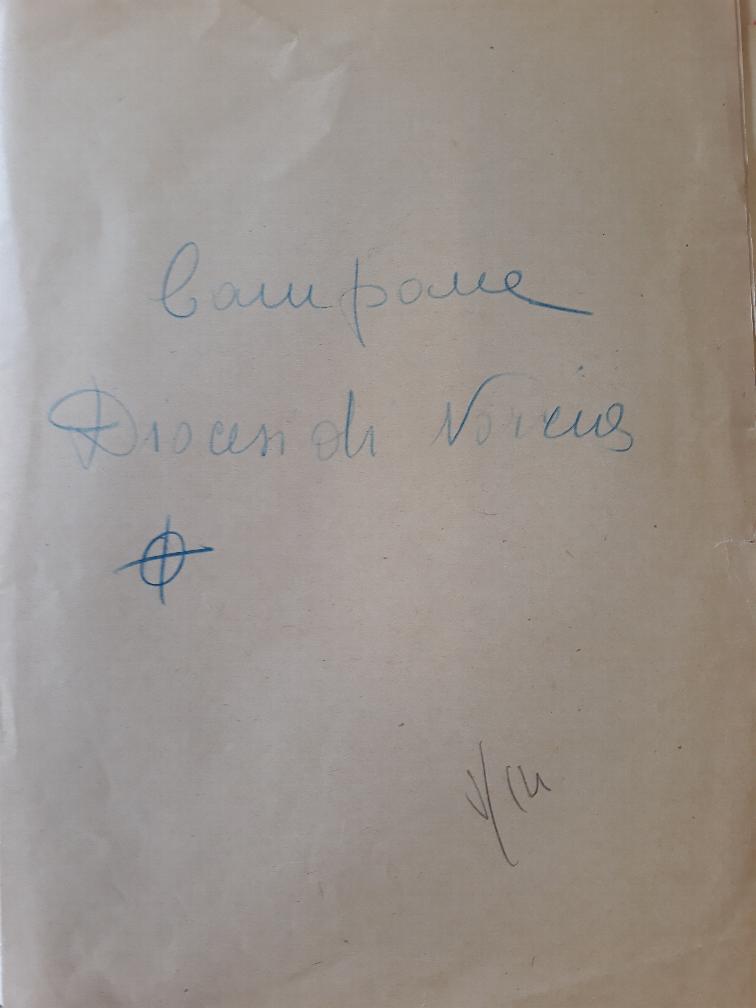 Campane
Diocesi di Norcia